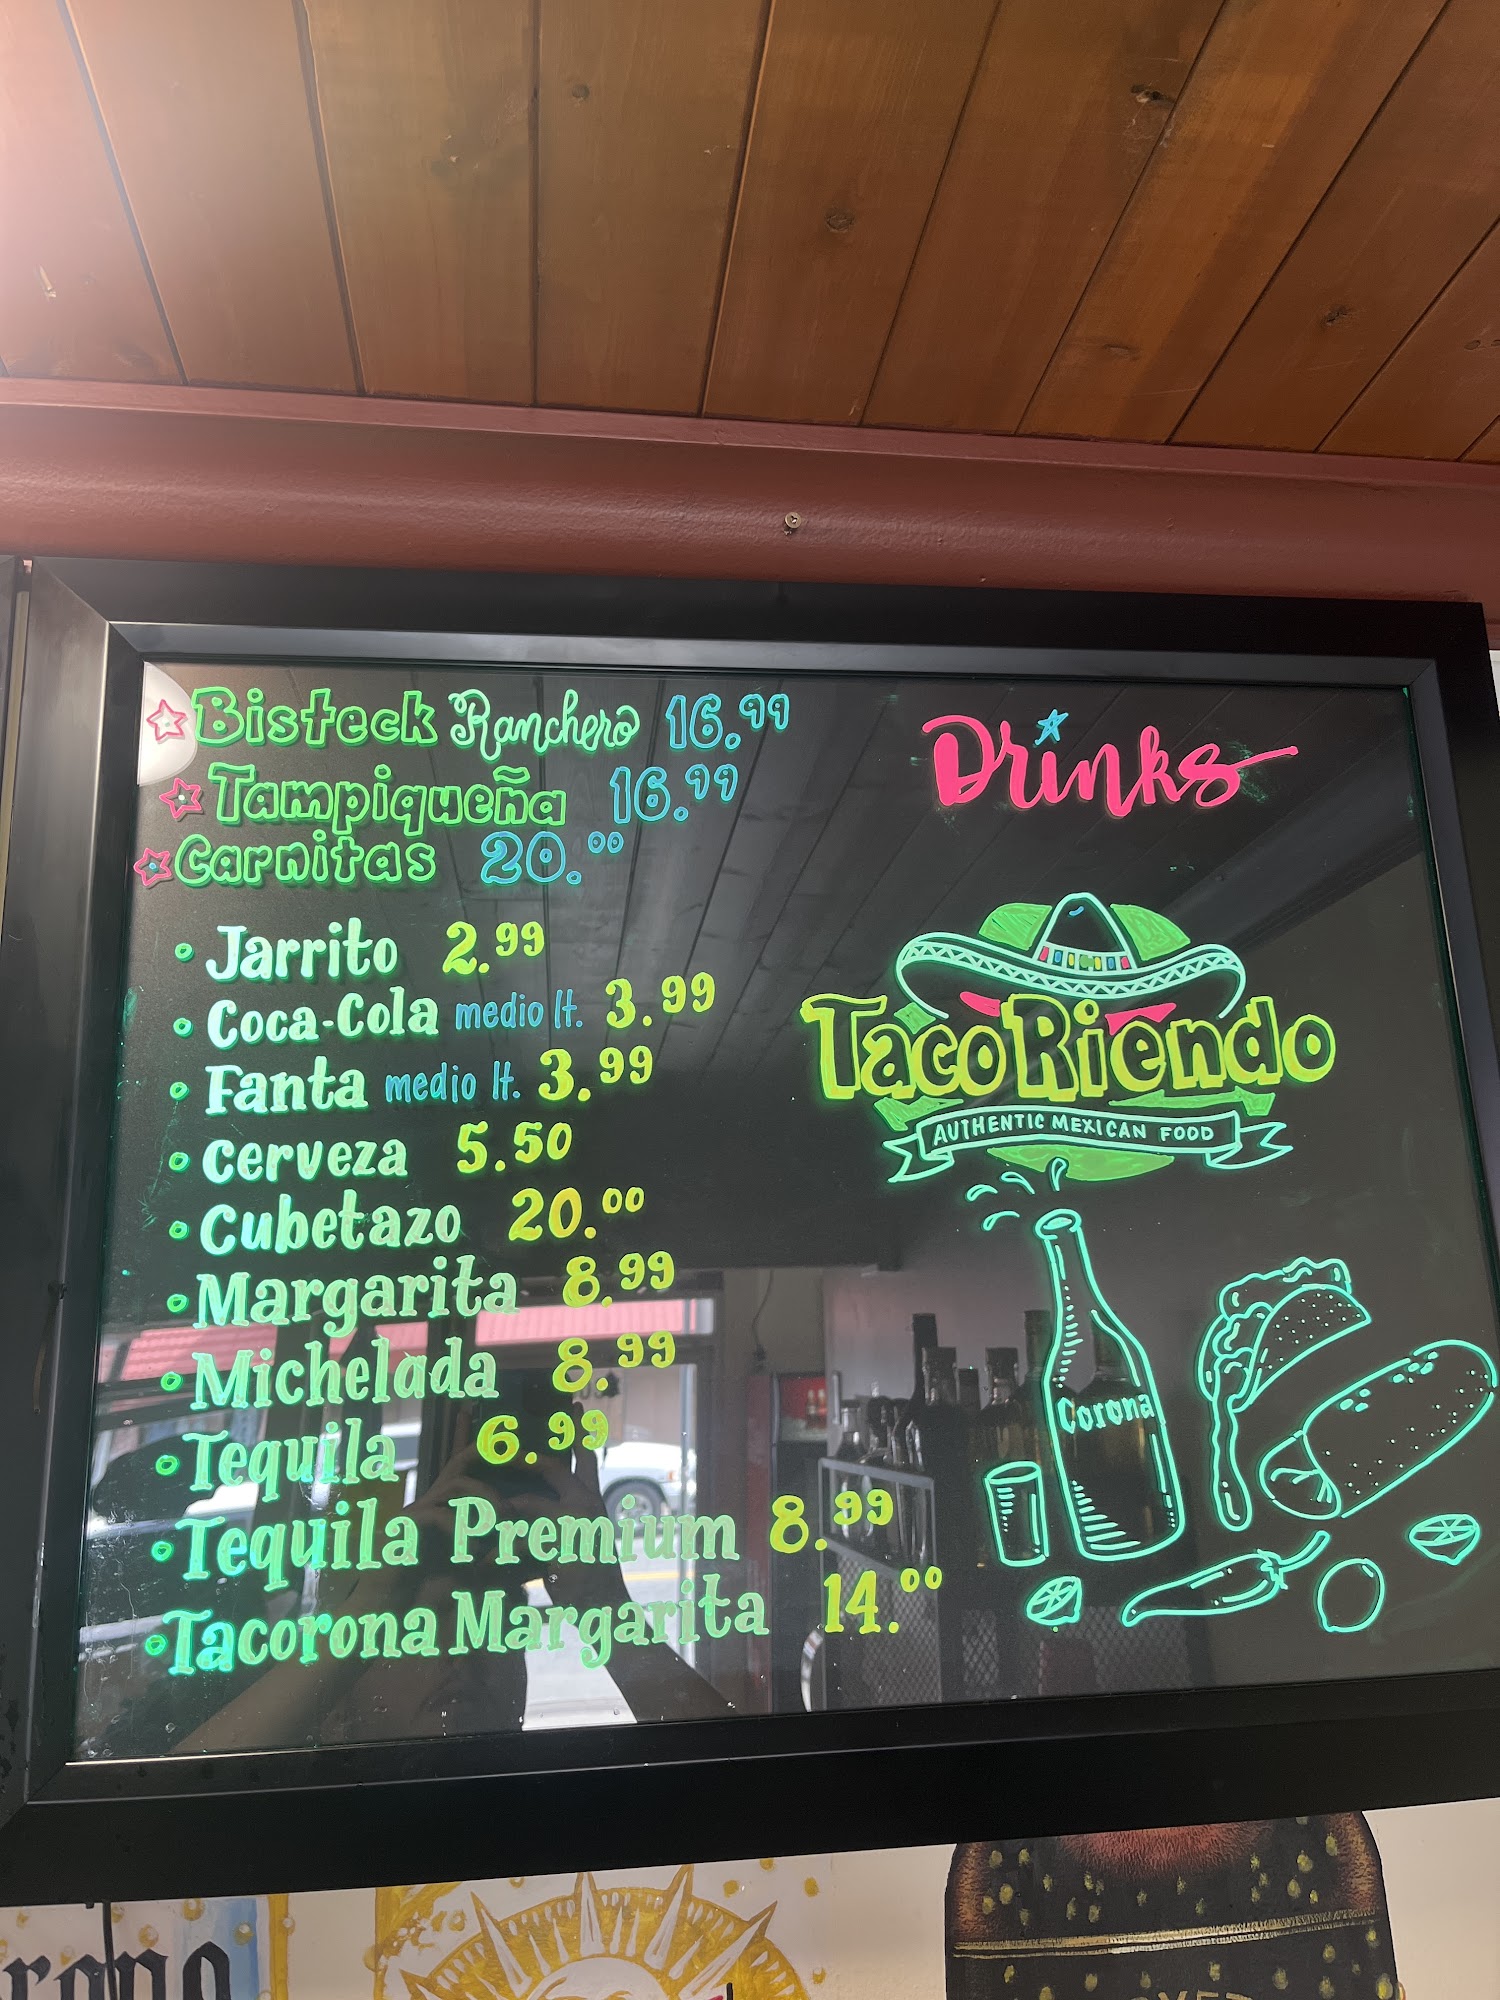 Bisteck Ranchero 16.99
Tampiqueña 16.99
Carnitas 20.00
Jarrito 2.99
Coca-Cola medio lt. 3.99
Fanta medio lt. 3.99
Cerveza 5.50
Cubetazo 20.00
Margarita 8.99
Michelada 8.99
Tequila 6.99
Tequila Premium 8.99
Tacorona Margarita 14.00
Drinks
Taco Riendo
AUTHENTIC MEXICAN FOOD
Corona